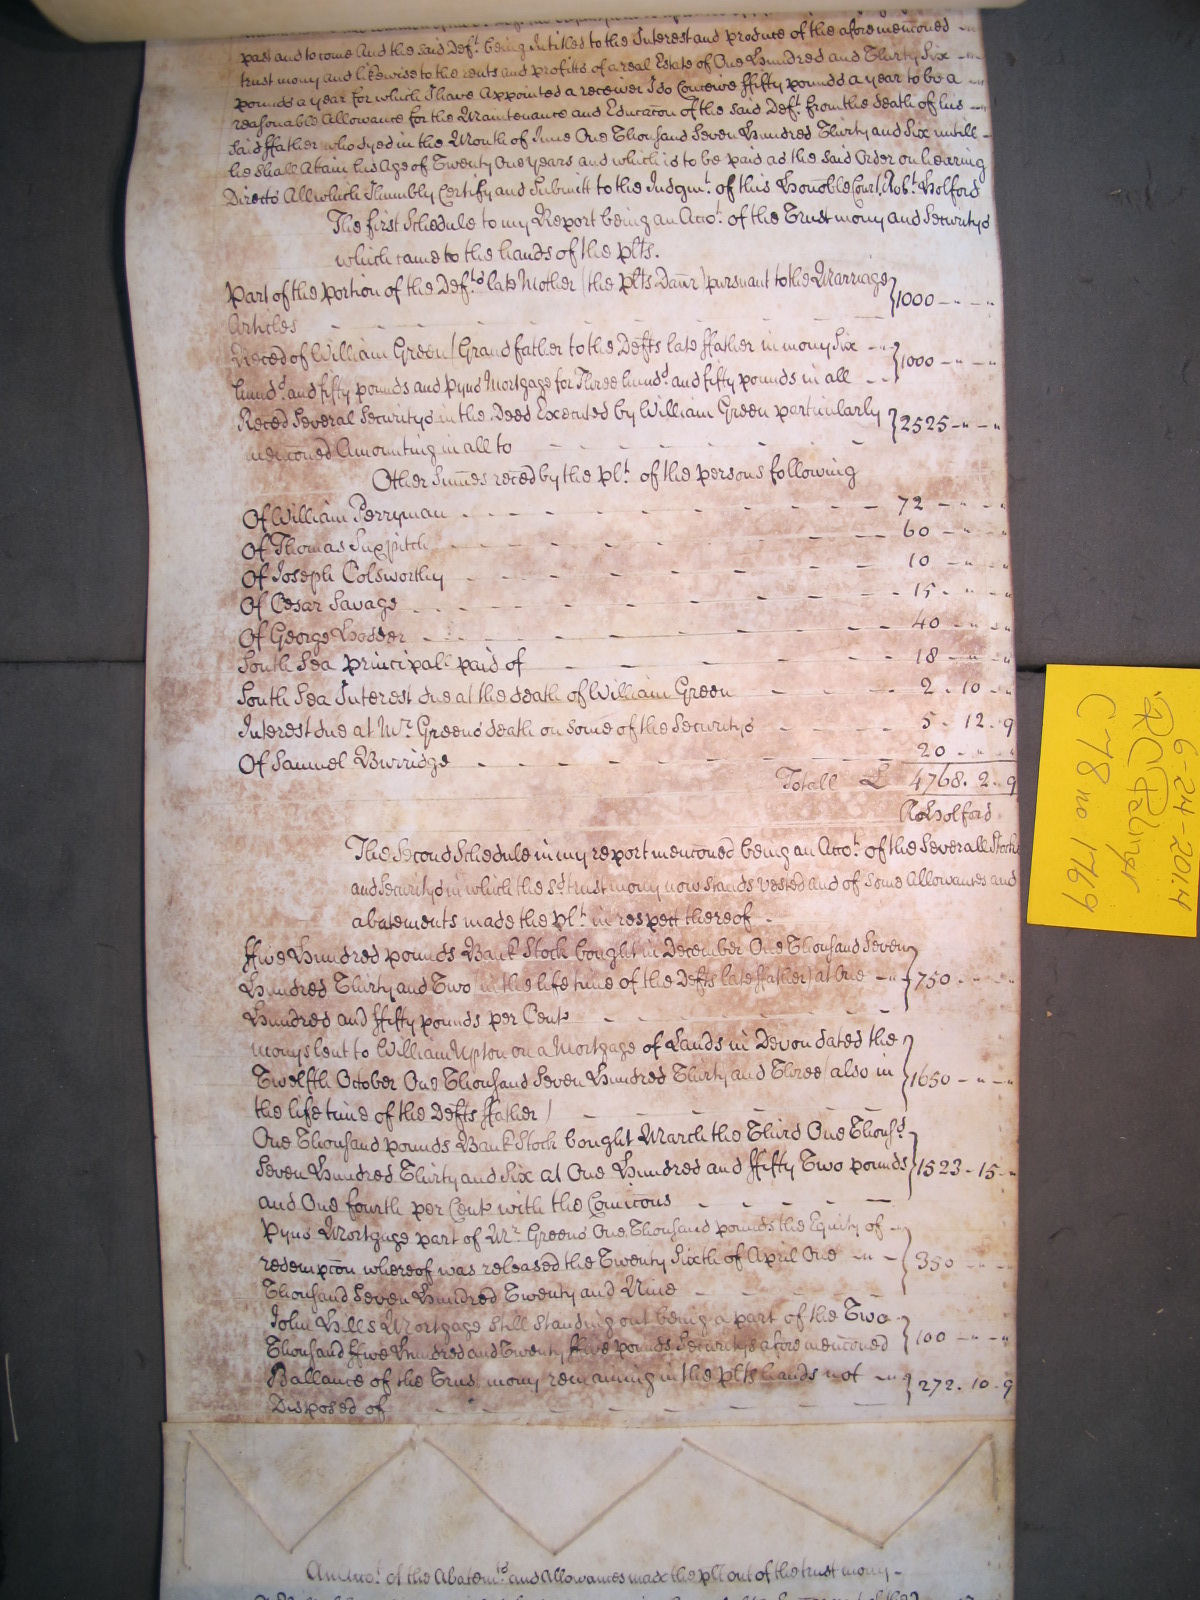 past and to come And the said Def.t being Intitled to the Interest and produce of the aforemenconed
trust mony and likewise to the rents and profitts of a real Estate of One Hundred and Thirty Six
pounds a year for which I have Appointed a receiver I do Conceive ffifty pounds a year to be a
reasonable Allowance for the Maintenance and Educacon of the said Def.t from the death of his
said ffather who dyed in the Month of June One Thousand Seven Hundred Thirty and Six untill
he shall Atain his Age of Twenty One years and which is to be paid as the said Order on hearing
Directs All which I humbly Certify and Submitt to the Judgm.t of this Honoble Court. Rob.t Holford
The first Schedule to my Report being an Acco.t of the Trust mony and Securitys
which came to the hands of the plts.
Part of the portion of the Def.ts late Mother (the plts Daur) pursuant to the Marriage } 1000 - " - "
Articles
Reced of William Green (Grandfather to the Defts late ffather in mony Six } 1000 - " - "
hund.d and fifty pounds and Pyns Mortgage for Three hund.d and fifty pounds in all
Reced Several Securitys in the Deed Executed by William Green particularly } 2525 - " - "
menconed Amounting in all to
Other Summes reced by the pl.t of the persons following
Of William Perryman 72 - " - "
Of Thomas 60 - " - "
Of Joseph Colsworthy 10 - " - "
Of Cesar Savage 15 - " - "
Of George 40 - " - "
South Sea principall paid of 18 - " - "
South Sea Interest due at the death of William Green 2 . 10 . "
Interest due at M.r Greens death on some of the Securitys 5 . 12 . 9
Of Samuel Burridge 20 - " - "
Totall £ 4768 . 2 . 9
Ro Holford
The Second Schedule in my report menconed being an Acco.t of the Severall Stocks
and Securitys in which the s.d trust mony now stands vested and of Some Allowances and
abatements made the pl.t in respect thereof
ffive Hundred pounds Bank Stock bought in December One Thousand Seven
Hundred Thirty and Two (in the life time of the Defts late ffather) at One } 750 - " - "
Hundred and ffifty pounds per Cent
monys lent to William Upton on a Mortgage of Lands in Devon dated the
Twelfth October One Thousand Seven Hundred Thirty and Three (also in } 1650 - " - "
the life time of the Defts ffather)
One Thousand pounds Bank Stock bought March the Third One Thous.d
Seven Hundred Thirty and Six at One Hundred and ffifty Two pounds } 1523 - 15 - "
and One fourth per Cent with the Comicons
Pyns Mortgage part of M.r Greens One Thousand pounds the Equity of
redempcon whereof was released the Twenty Sixth of April One } 350 - " - "
Thousand Seven Hundred Twenty and Nine
John Hills Mortgage still standing out being a part of the Two
Thousand ffive Hundred and Twenty ffive pounds Securitys afore menconed } 100 - " - "
Ballance of the Trust mony remaining in the plts hands not } 272 . 10 . 9
Disposed of
of the Abatem.ts and Allowances made the plt out of the trust mony
6-24-2014
R C Palmer
C 78 no 1769